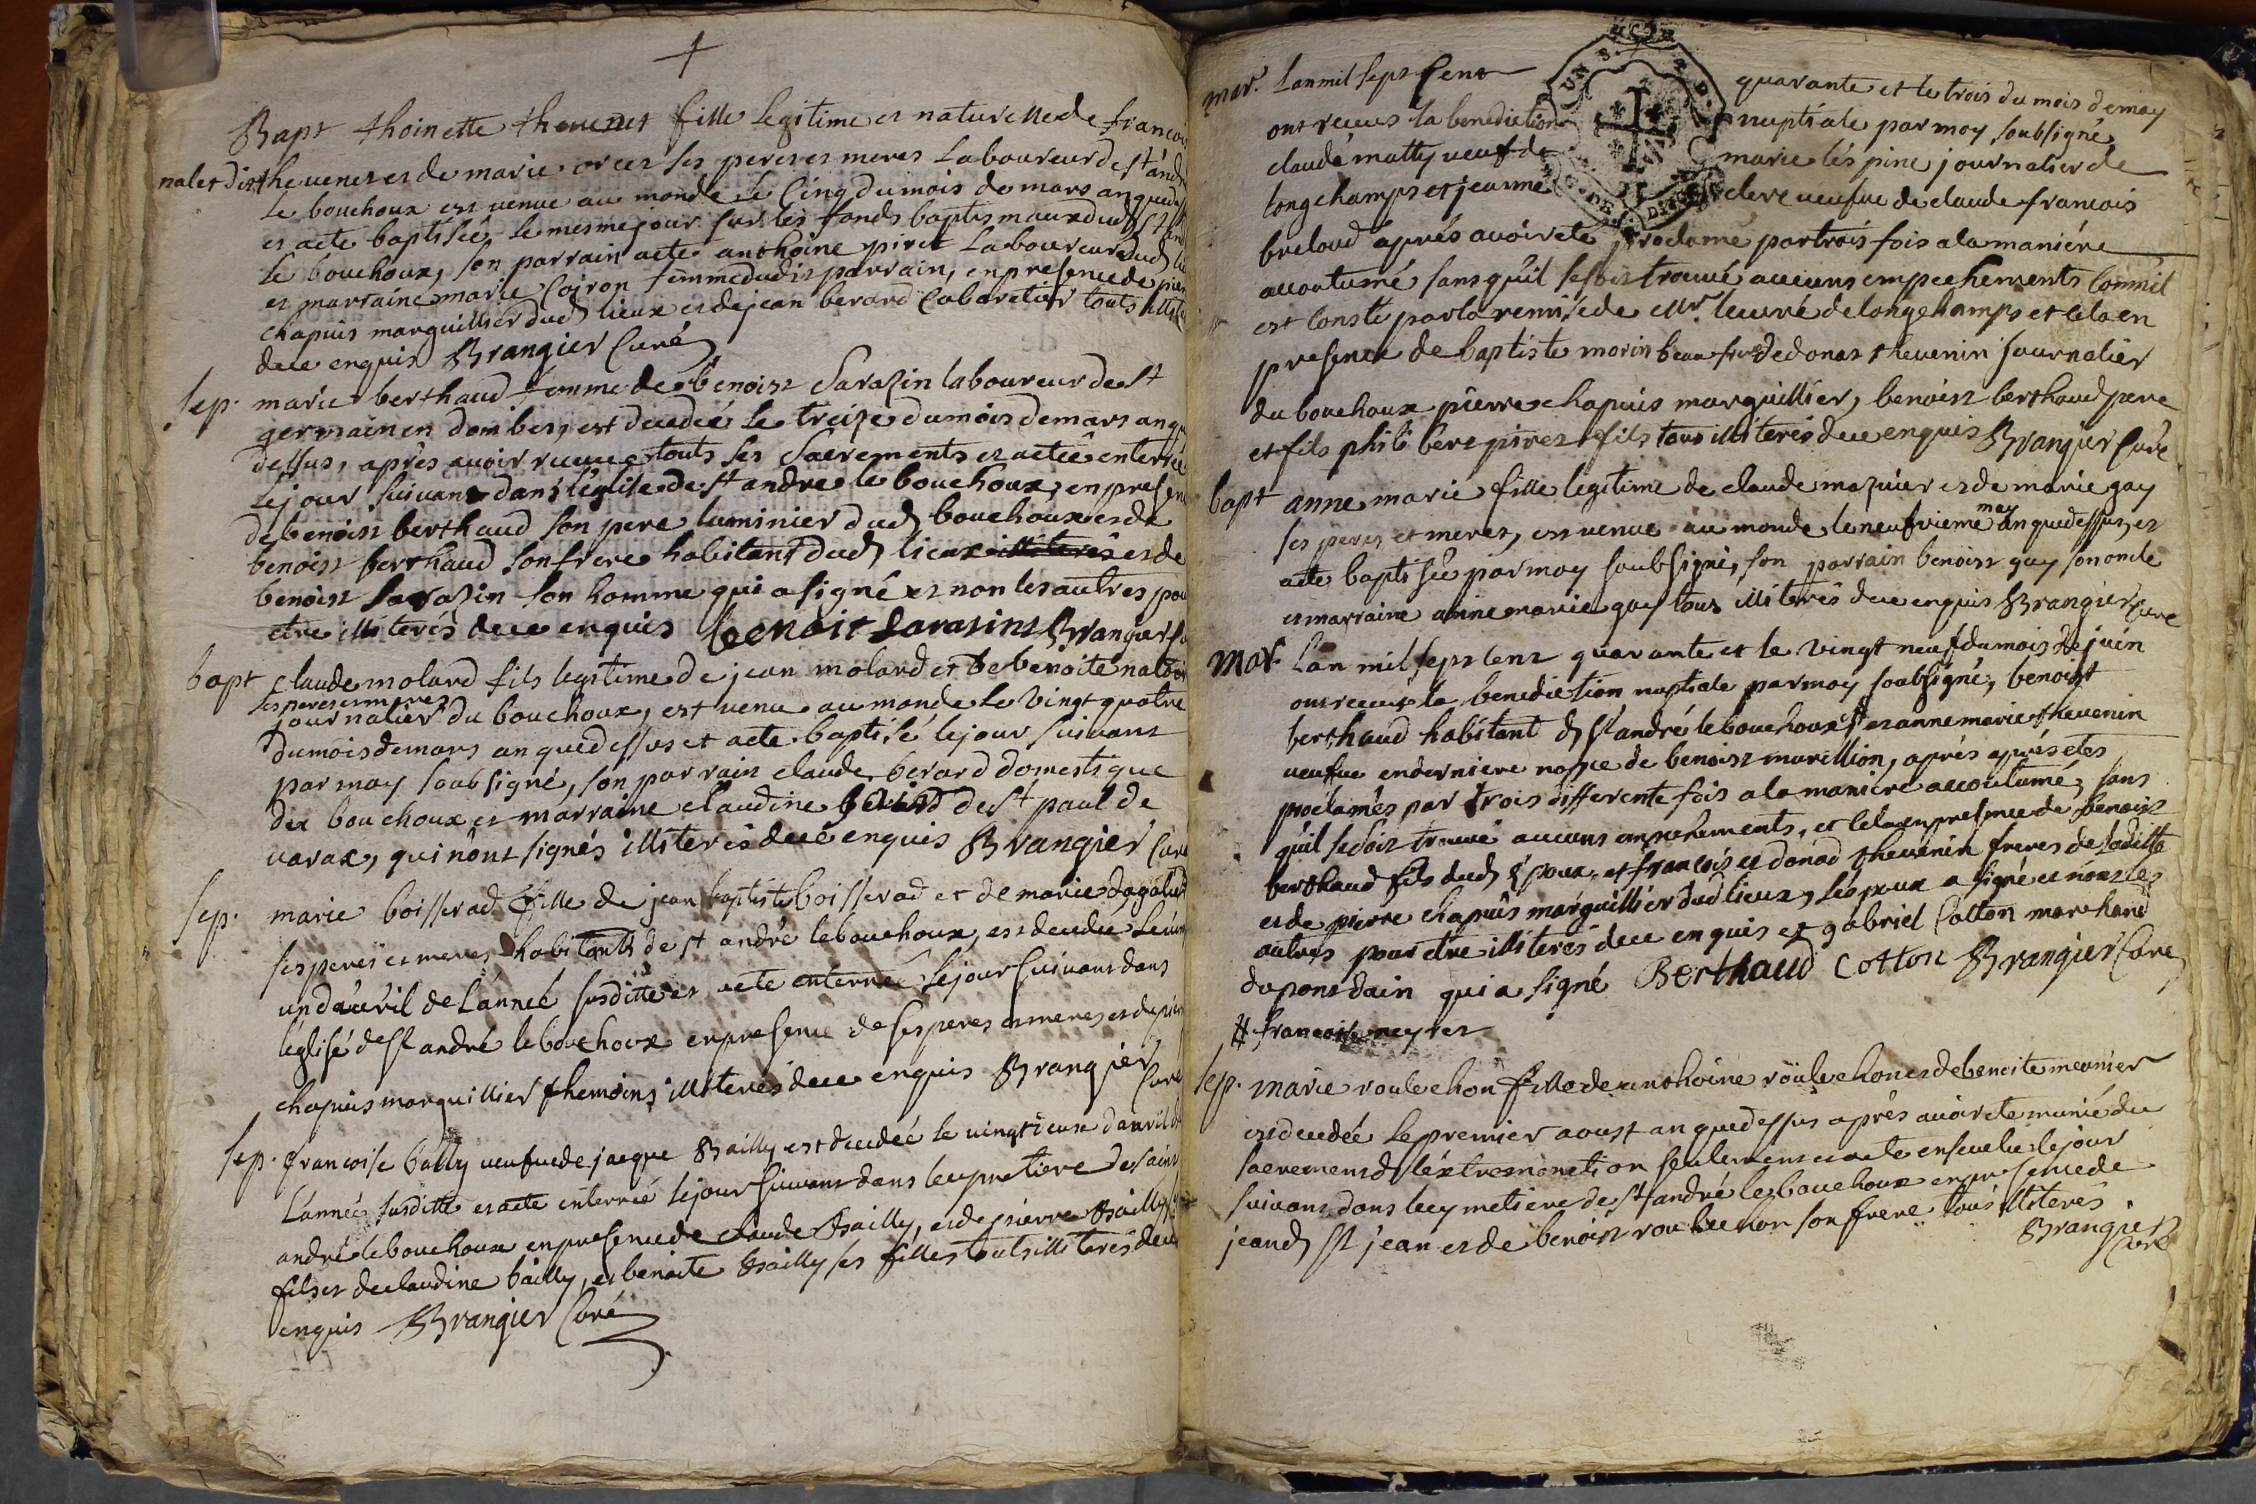 Bapt thoinette thevenet fille legitime et naturelle de francois
nalet dit thevenet et de marie orcet ses peres et meres Laboureur de st andré
le bouchoux est venue au monde le Cinq du mois de mars an que dessus
et a ete baptisée le mesme jour sur les fonds baptismaux dud st andré
le bouchoux, son parrain a ete anthoine piret Laboureur dud lieu
et marraine marie Coiron femme dudit parrain, en presence de pierre
chapuis marguillier dud lieux et de jean berard Cabaretier touts illit
de ce enquis Brangier Curé
sep. marie berthaud femme de benoist Sarasin laboureur de St
germain en dombes, est decedeé le treize du mois de mars an que
dessus, après avoir receue touts ses Sacrements et a etée enterrée
le jour suivant dans l'eglise de st andre le bouchoux, en presence
de benoist berthaud son pere luminier dud bouchoux et de
benoist berthaud son frere habitant dud lieux illiterés et de
benoist Sarasin son homme qui a signé et non les autres pour
etre illiterés de ce enquis benoit Sarasint Brangier Cu
bapt claude molard fils legitime de jean molard et de benoite
ses peres et meres
journalier du bouchoux, est venu au monde le vingt quatre
du mois de mars an que dessus et a ete baptisé le jour suivant
par moy soubsigné, son parrain claude berard domestique
du bouchoux et marraine claudine de St paul de
varax, qui n'ont signés illiterés de ce enquis Brangier Curé
sep. marie boisserad fille de jean baptiste boisserad et de marie
ses peres et meres habitants de st andré le bouchoux, est decedée le
un d'avéril de l'anneé susditte et a ete enterrée le jour suivant dans
l'églisé de St andré le bouchoux en presence de ses peres et meres et de pierre
chapuis marguillier themoins illiterés de ce enquis Brangier
Curé
sep. francoise bailly veufve de jacque Bailly est decedeé le vingtieme d'avril de
l'anneé susditte et a ete enterreé le jour suivant dans le cymetiere de saint
andré le bouchoux en presence de claude Bailly, et de pierre Bailly
fils et de claudine bailly, et benoite Bailly ses filles touts illiterés de ce
enquis Brangier Curé
mar. Lan mil sept Cent quarante et le trois du mois de may
ont receus la benediction nuptiale par moy soubsigné
claude matty veuf de marie l'éspine journalier de
longchamps et jeanne clere veufve de claude francois
breloud aprés avoir ete proclamé par trois fois a la maniére
accoutumé sans qu'il se soit trouvé aucuns empechements Comm'il
est Consté par la remise de Mr. le curé de longchamps et cela en
presence de baptiste morin beau frere de donat thevenin journalier
du bouchoux pierre chapuis marguillier, benoist berthaud pere
et fils philibert piret fils tous illiterés de ce enquis Brangier Curé
bapt anne marie fille legitime de claude mazuier et de marie gay
ses peres et meres, est venue au monde le neufvieme may an que dessus, et
a ete baptisée par moy soubsigné, son parrain benoist gay son oncle
et marraine anne marie gay tous illiterés de ce enquis Brangier Curé
mar. Lan mil sept cent quarante et le vingt neuf du mois de juin
ont receus la benediction nuptiale par moy soubsigné, benoist
berthaud habitant d St andré le bouchoux # et anne marie thevenin
veufve en derniere nopce de benoist marillion, aprés aprés etes
proclamés par trois differente fois a la maniere accoutumé, sans
qu'il se soit trouvé aucuns empechements, et cela en presence de benoist
berthaud fils dud époux, et francois et donad thevenin freres de laditte
et de pierre chapuis marguillier dud lieux, l'espoux a signé et non les
autres pour etre illiterés de ce enquis et gabriel Cotton marchand
du pont dain qui a signé Berthaud Cotton Brangier Curé
# francoise neyret
sep. marie roulechon fille de anthoine roulechon et de benoite meunier
est decedée le premier aoust an que dessus aprés avoir ete munié du
sacrement d l'éxtremonction seulement et a ete ensevelie le jour
suivant dans le cymetiere de St andré le bouchoux en presence de
jean d St jean et de benoist roulechon son frere tous illiterés
Brangier
Curé